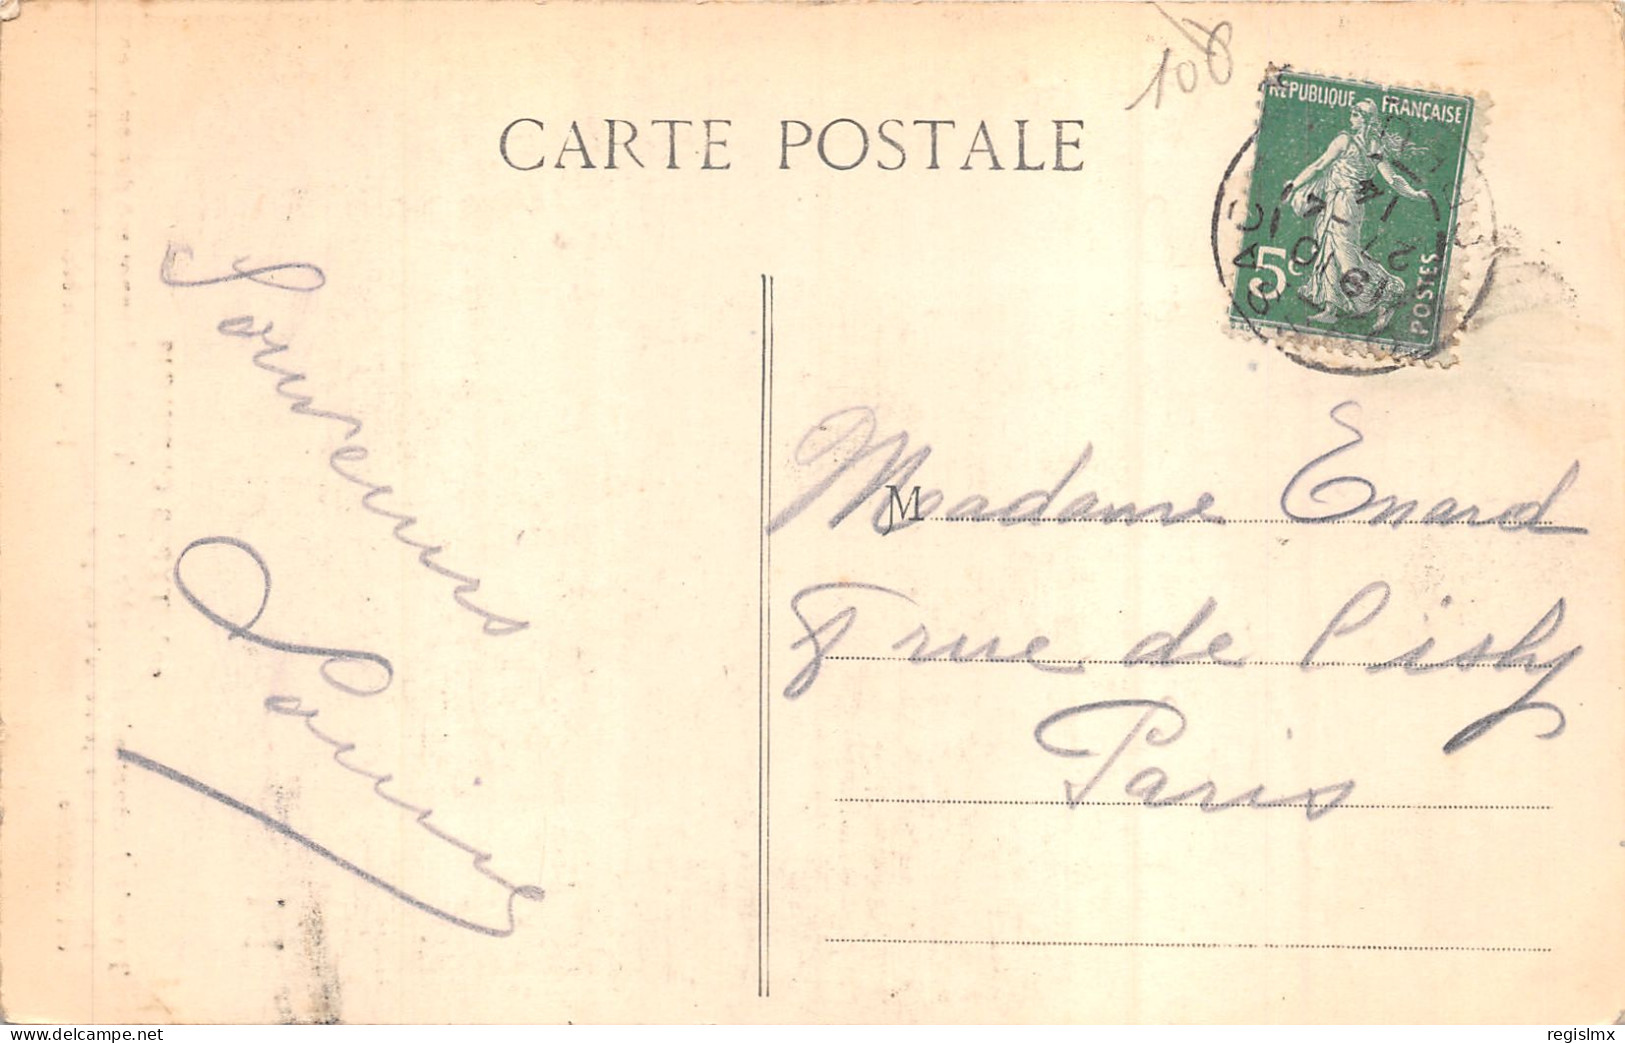 100
CARTE POSTALE
REPUBLIQUE FRANÇAISE
5c
POSTES
Souvenirs
Louise
M
Madame Enard
7 rue de
Paris
delcampe.net
regislmx